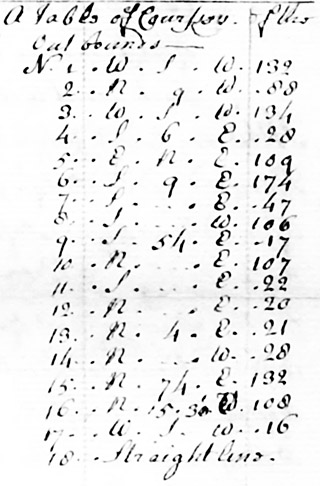 A Table of Courses. of the
Out bounds —
N. 1 . W . S . W . 132
2 . N . 9 . W . 88
3 . W . S . W . 134
4 . S . 6 . E . 28
5 . E . N . E . 109
6 . S . 9 . E . 174
7 . S . . . E . 47
8 . S . . . W . 106
9 . S . 54 . E . 17
10 . N . . . E . 107
11 . S . . . E . 22
12 . N . . . E . 20
13 . N . 4 . E . 21
14 . N . . . W . 28
15 . N . 74 . E . 132
16 . N . 15.30 . W . 108
17 . W . S . W . 16
18 . Straight line.